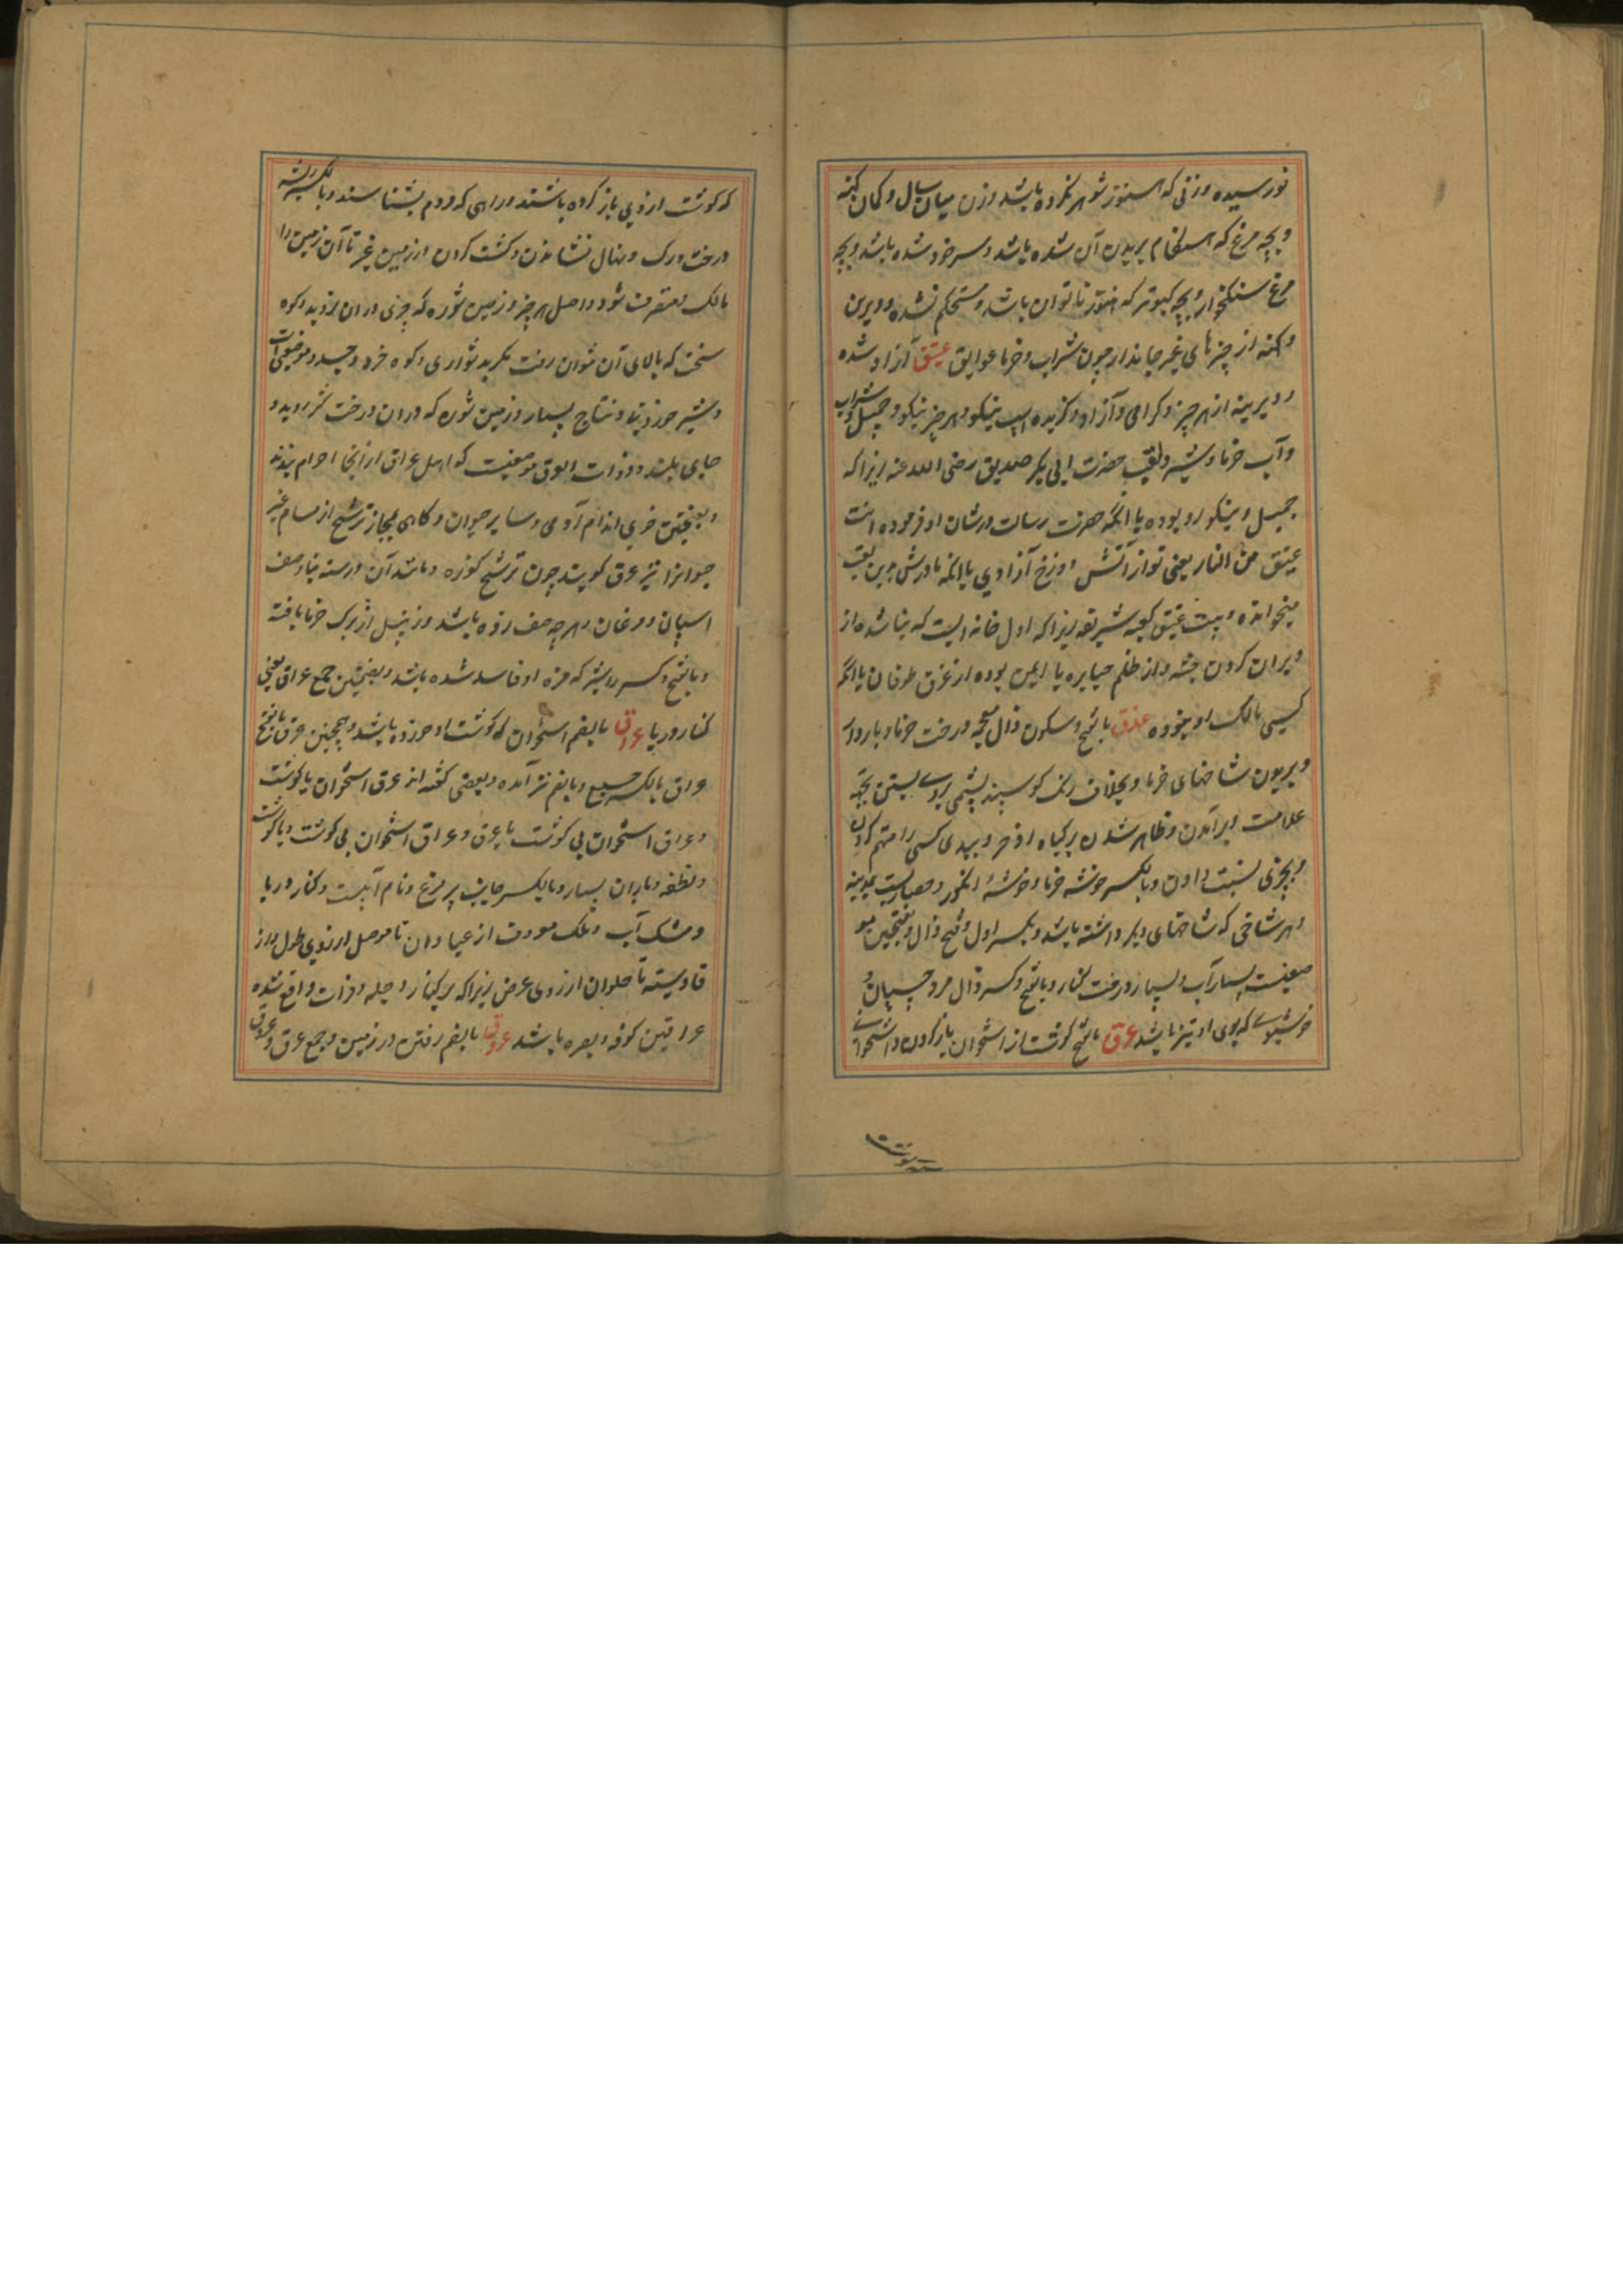 نورسیده و زنی که هنوز شوهر نکرده باشد و زن میان سال و کمان کهنه
و بچه مرغ که هنگام پریدن آن شده باشد و سر خود شده باشد و بچه
مرغ سنکخوار و بچه کبوتر که هنوز ناتوان باشد و مستحکم نشده و دیرین
و کهنه از چیزهای غیر جاندار چون شراب و خرما عوایق عتیق آزاد شده
و دیرینه از هر چیز و کرامی و آزاد و کزیده اسپ نیکو و هر چیز نیکو و جمیل و شراب
و آب خرما و شیر و لقب حضرت ابی بکر صدیق رضی الله عنه زیرا که
جمیل و نیکو رو بوده یا انکه حضرت رسالت در شان او فرموده انت
عتیق من النار یعنی تو از آتش دوزخ آزادی یا انکه مادرش بدین لقب
میخوانده و بیت عتیق کعبه شریفه زیرا که اول خانه ایست که بنا شده از
ویران کردن حبشه و از ظلم جبابره یا ایمن بوده از غرق طوفان یا انکه
کسی مالک او نبوده عذق بالفتح و سکون ذال معجمه درخت خرما با بار
و بریدن شاخهای خرما و بخلاف رنک کوسپند پشمی بروی بستن بجهة
علامت و برآمدن و ظاهر شدن بر کیاه اذخر و ببدی کسی را متهم کردن
و بچیزی نسبت دادن و بالکسر خوشه خرما و خوشهٔ انکور و حصاریست بمدینه
و هر شاخی که شاخهای دیکر داشته باشد و بکسر اول و فتح ذال و بفتحین مو
ضعیست بسیار آب و بسیار درخت کنار و بالفتح و کسر ذال مرد چسپان و
خوشبوی که بوی او تیز باشد عرق بالفتح کوشت از استخوان باز کردن و استخوان
که کوشت از وی باز کرده باشند و راهی که مردم بشناسند و بالکسر ریشه
درخت و رک و نهال نشاندن و کشت کردن در زمین غیر تا آن زمین را
مالک و متصرف شود و اصل هر چیز و زمین شوره که چیزی در ان نروید و کوه
سخت که بالای آن نتوان رفت مکر بدشواری و کوه خرد و جسد و موضعی است
و شیر خوردنی و نتاج بسیار و زمین شوره که در ان درخت کز روید و
جای بلند و ذوات العرق موضعیست که اهل عراق ازانجا احرام بندند
و بفتحتین خوی اندام آدمی و سایر حیوان و کاهی بمجاز ترشح از مسام غیر
حیوانرا نیز عرق کویند چون ترشح کوزه و مانند آن و رسته بنا و صف
اسپان و مرغان و هر چه صف زده باشد و زنبیل از برک خرما بافته
و بالفتح و کسر را شیر که مزه او فاسد شده باشد و بضمتین جمع عراق یعنی
کنار دریا عراق بالضم استخوان که کوشت او خورده باشد و همچنین عرق بالفتح
عراق بالکسر جمع و بالضم نیز آمده و بعضی کفته اند عرق استخوان با کوشت
و عراق استخوان بی کوشت یا عرق و عراق استخوان بی کوشت و با کوشت
و نطفه و باران بسیار و بالکسر جانب پر مرغ و نام آبیست و کنار دریا
و مشک آب و ملک معروف از عبادان تا موصل از روی طول و از
قادسیه تا حلوان از روی عرض زیرا که بر کنار دجله و فرات واقع شده
عراقین کوفه و بصره باشد عروق بالضم رفتن در زمین و جمع عرق و عروق